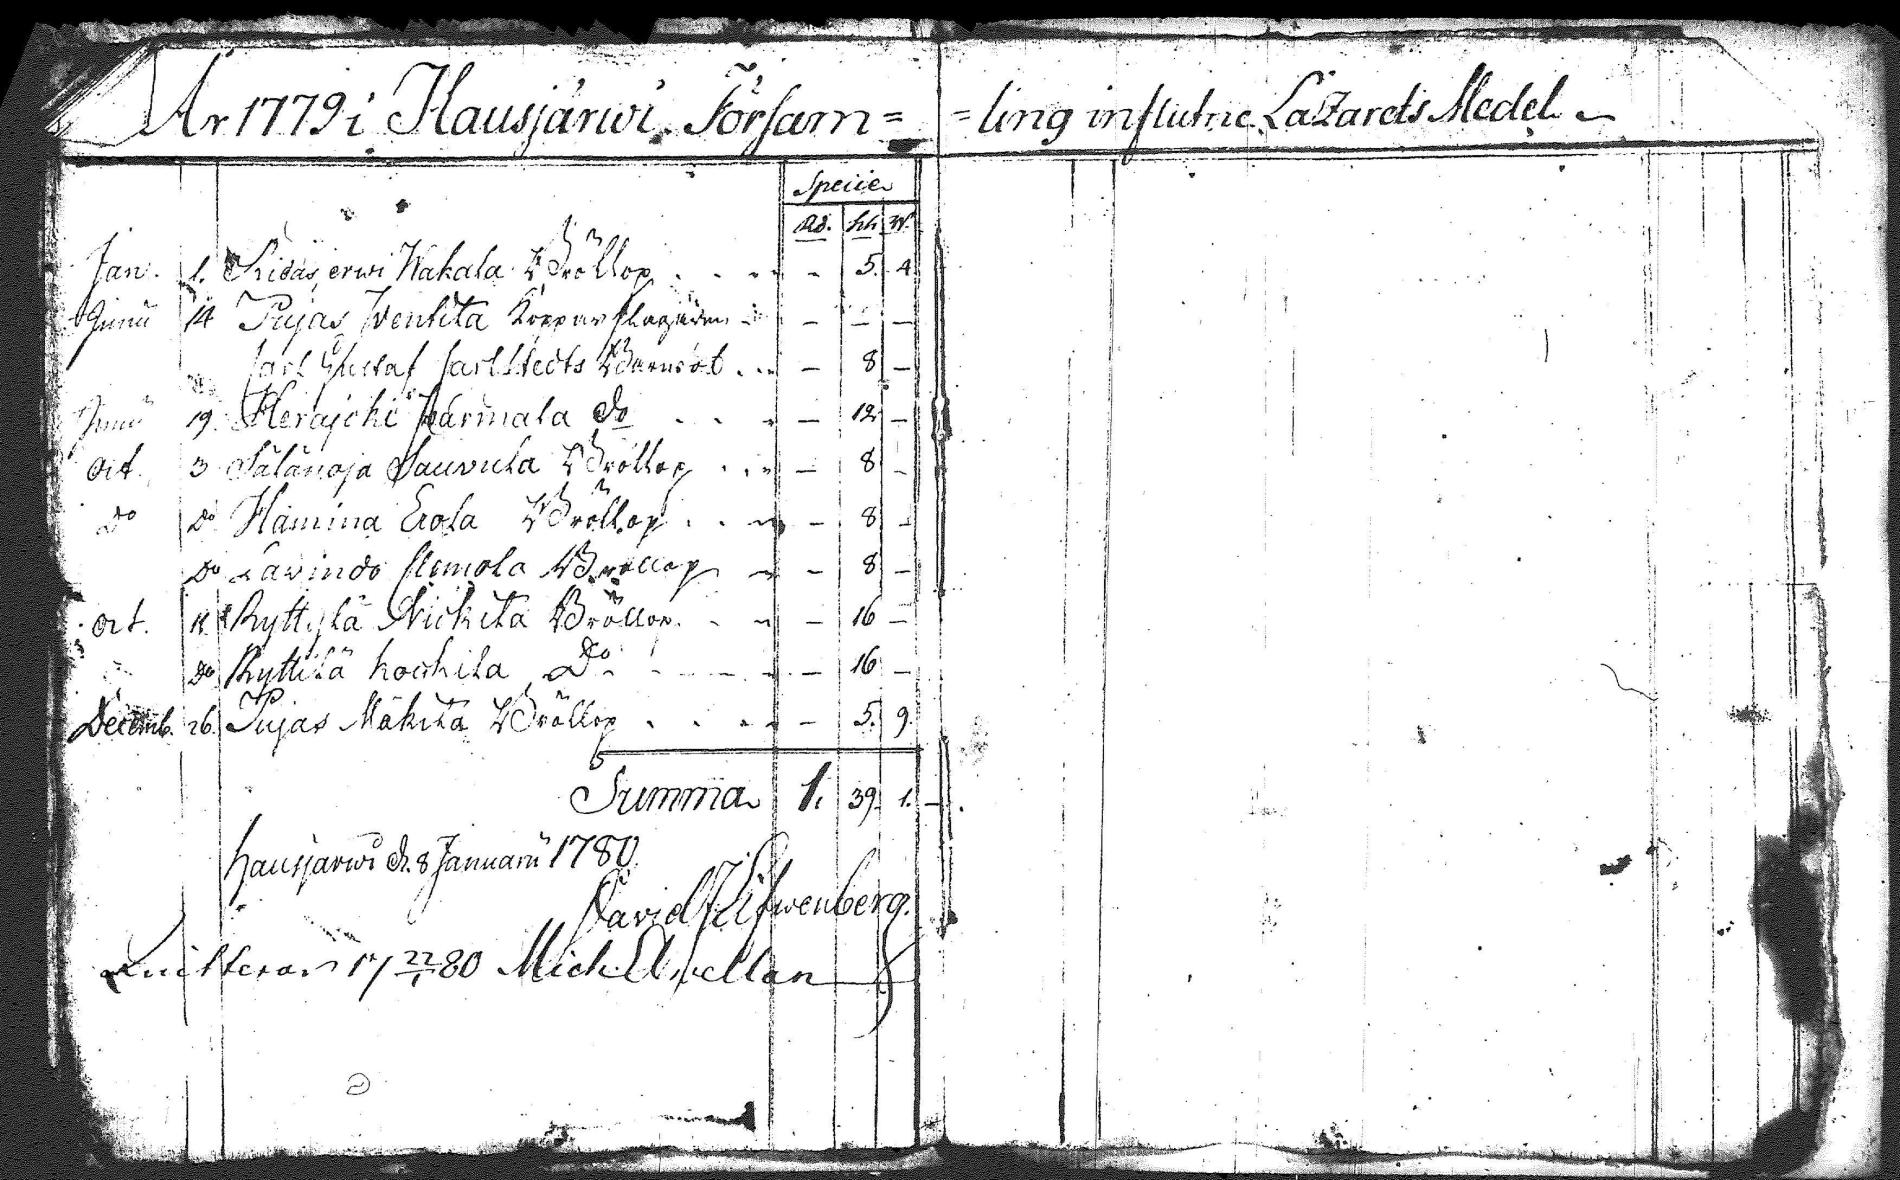 År 1779 i Hausjärwi Försam= =ling influtne Lazarets Medel
Specie
Rd. ss. rs.
Jan. 1. Ridasjerwi Wakala Bröllop - 5. 4
Junii 14 Pujas Wentila Kopparslagaren - - -
Carl Gustaf Carlstedts Barnsöl - 8 -
Junii 19. Herajoki Pärmala Do - 12 -
Oct. 3 Sälänoja Sauvula Bröllop - 8 -
Do Do Hamina Erola Bröllop - 8 -
Do Lavindo Bröllop - 8 -
Oct. Ryttylä Nickilä Bröllop - 16 -
Do Ryttilä Do - 16 -
Decemb. 26. Pujas Mäkilä Bröllop - 5. 9.
Summa 1. 39. 1.
Hausjärwi d. 8 Januarii 1780.
David
Quitteras 17 22/1 80 Mich. Avellan